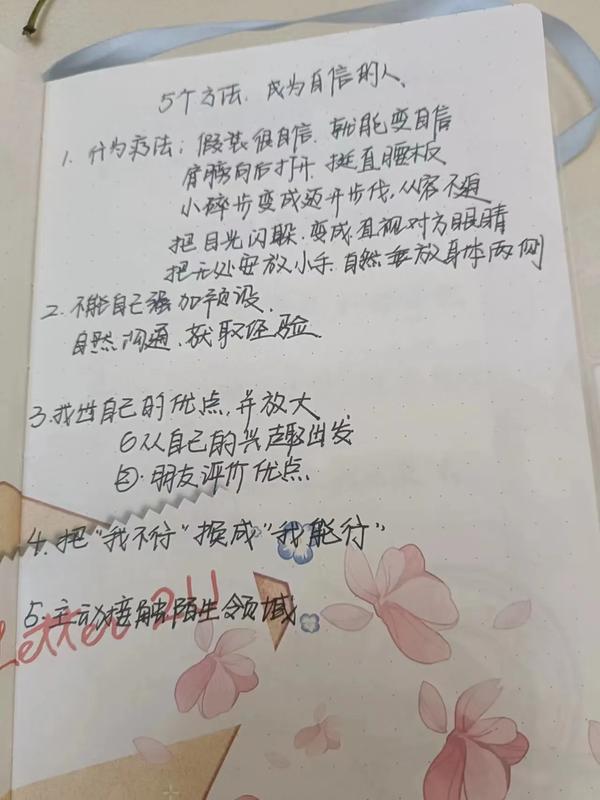 5个方法、成为自信的人、
1. 行为疗法：假装很自信、就能变自信
肩膀向后打开 挺直腰板
小碎步变成迈开步伐，从容不迫
把目光闪躲、变成直视对方眼睛
把无处安放小手、自然垂放身体两侧
2. 不能自己强加预设、
自然沟通、获取经验、
3. 找出自己的优点，并放大、
①从自己的兴趣出发
②·朋友评价优点、
4. 把“我不行”换成“我能行”
5. 主动接触陌生领域
Letter